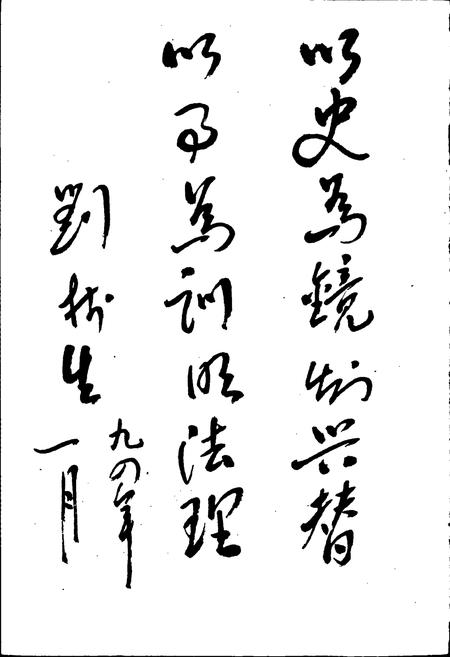 以史為鏡知兴替
以事為训明法理
劉樹生
九四年
一月